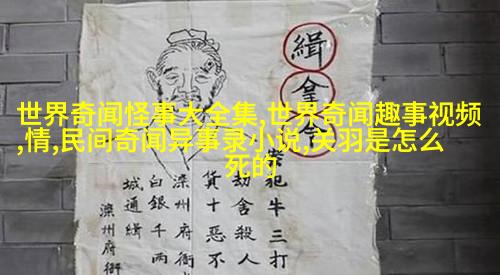 世界奇闻怪事大全集,世界奇闻趣事视频
,情,民间奇闻异事录小说,关羽是怎么
死的
緝拿
犯牛三打
劫舍殺人
貨十恶不
滦州府衙
白銀千两
城通緝
滦州府衙